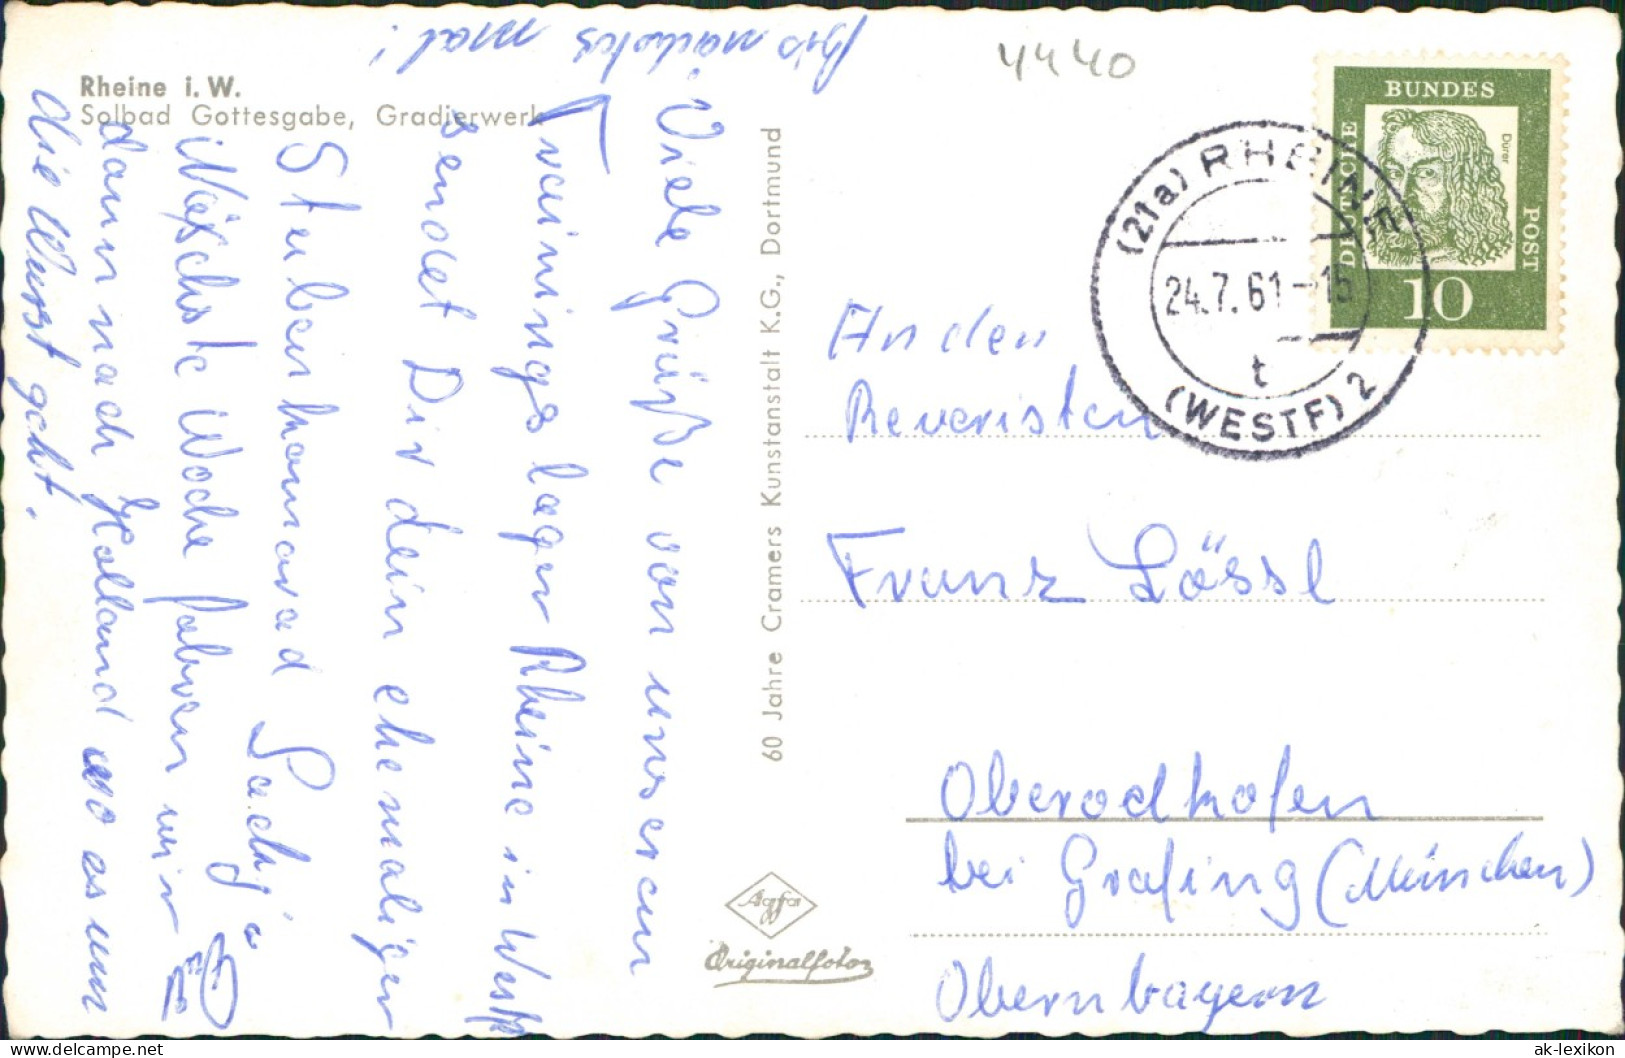 4440
Rheine i. W.
Solbad Gottesgabe, Gradierwerk
BUNDES
DEUTSCHE
POST
Dürer
10
(21a) RHEINE
24.7.61-15
t
(WESTF) 2
Viele Grüße von unserem
Traininingslager Rheine in Westf
sendet Dir dein ehemaliger
Stubenkamerad
Näschste Woche fahren wir
dann nach Holland wo es um
die Wurst geht.
Bis nächstes
mal!
60 Jahre Cramers Kunstanstalt K.G., Dortmund
Agfa
Originalfoto
An den
Reveristen
Franz Lössl
Oberodhofen
bei Grafing (München)
Obernbayern
ak-lexikon